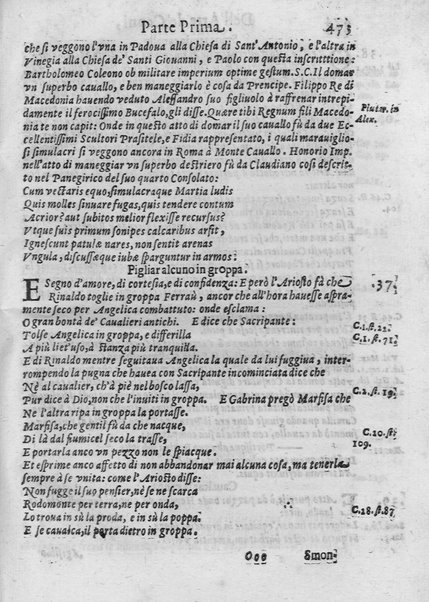 Parte Prima. 473
che si veggono l'vna in Padoua alla Chiesa di Sant'Antonio, e l'altra in
Vinegia alla Chiesa de' Santi Giouanni, e Paolo con questa inscrittione:
Bartholomeo Coleono ob militare imperium optime gestum. S.C. Il domar
vn superbo cauallo, e ben maneggiarlo è cosa da Prencipe. Filippo Re di
Macedonia hauendo veduto Alessandro suo figliuolo à raffrenar intrepi-
damente il ferocissimo Bucefalo, gli disse. Quære tibi Regnum fili Macedo-
Plutar. in
nia te non capit: Onde in questo atto di domar il suo cauallo fù da due Ec-
Alex.
cellentissimi Scultori Prasitele, e Fidia rappresentato, i quali marauiglio-
si simulacri si veggono ancora in Roma à Monte Cauallo. Honorio Imp.
nell'atto di maneggiar vn superbo destriero fù da Claudiano così descrit-
to nel Panegirico del suo quarto Consolato:
Cum vectaris equo, simulacraque Martia ludis
Quis molles sinuare fugas, quis tendere contum
Acrior? aut subitos melior flexisse recursus?
Vtque suis primum sonipes calcaribus arsit,
Ignescunt patulæ nares, non sentit arenas
Vngula, discussæque iubæ sparguntur in armos:
Pigliar alcuno in groppa.
E Segno d'amore, di cortesia, e di confidenza: E però l'Ariosto fà che
37
Rinaldo toglie in groppa Ferraù, ancor che all'hora hauesse aspra-
mente seco per Angelica combattuto: onde esclama:
O gran bontà de' Caualieri antichi. E dice che Sacripante:
C.1.st.22.
Tolse Angelica in groppa, e differilla
C.1.st.71.
A più liet'uso, à stanza più tranquilla.
E di Rinaldo mentre seguitaua Angelica la quale da lui fuggiua, inter-
rompendo la pugna che hauea con Sacripante incominciata dice che
Nè al caualier, ch'à piè nel bosco lassa,
Pur dice à Dio, non che l'inuiti in groppa. E Gabrina pregò Marfisa che
C.1.st.19.
Ne l'altra ripa in groppa la portasse.
Marfisa, che gentil fù da che nacque,
Di là dal fiumicel seco la trasse,
C.10.st.
E portarla anco vn pezzo non le spiacque.
109.
Et esprime anco affetto di non abbandonar mai alcuna cosa, ma tenerla
sempre à se vnita: come l'Ariosto disse:
Non fugge il suo pensier, nè se ne scarca
Rodomonte per terra, ne per onda,
C.18.st.87
Lo troua in sù la proda, e in sù la poppa.
E se caualca, il porta dietro in groppa.
Ooo Smon-